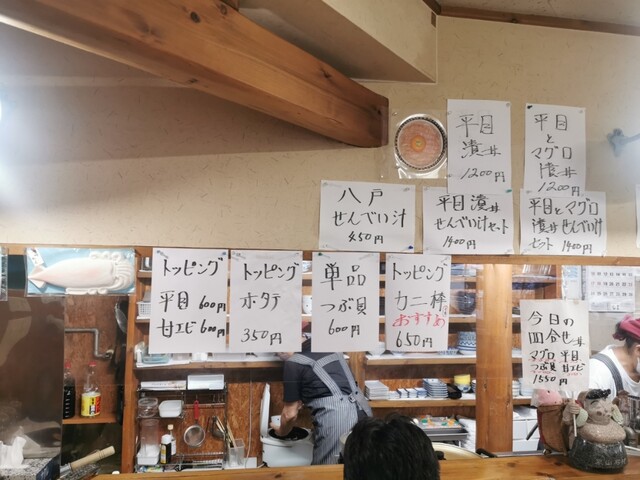 平目
漬丼
1200円
平目
と
マグロ
漬丼
1200円
八戸
せんべい汁
450円
平目漬丼
せんべい汁セット
1400円
平目とマグロ
漬丼せんべい汁
セット 1400円
トッピング
平目 600円
甘エビ 600円
トッピング
ホタテ
350円
単品
つぶ貝
600円
トッピング
カニ棒
おすすめ
650円
今日の
四合せ丼
マグロ 平目
つぶ貝 甘エビ
1550円